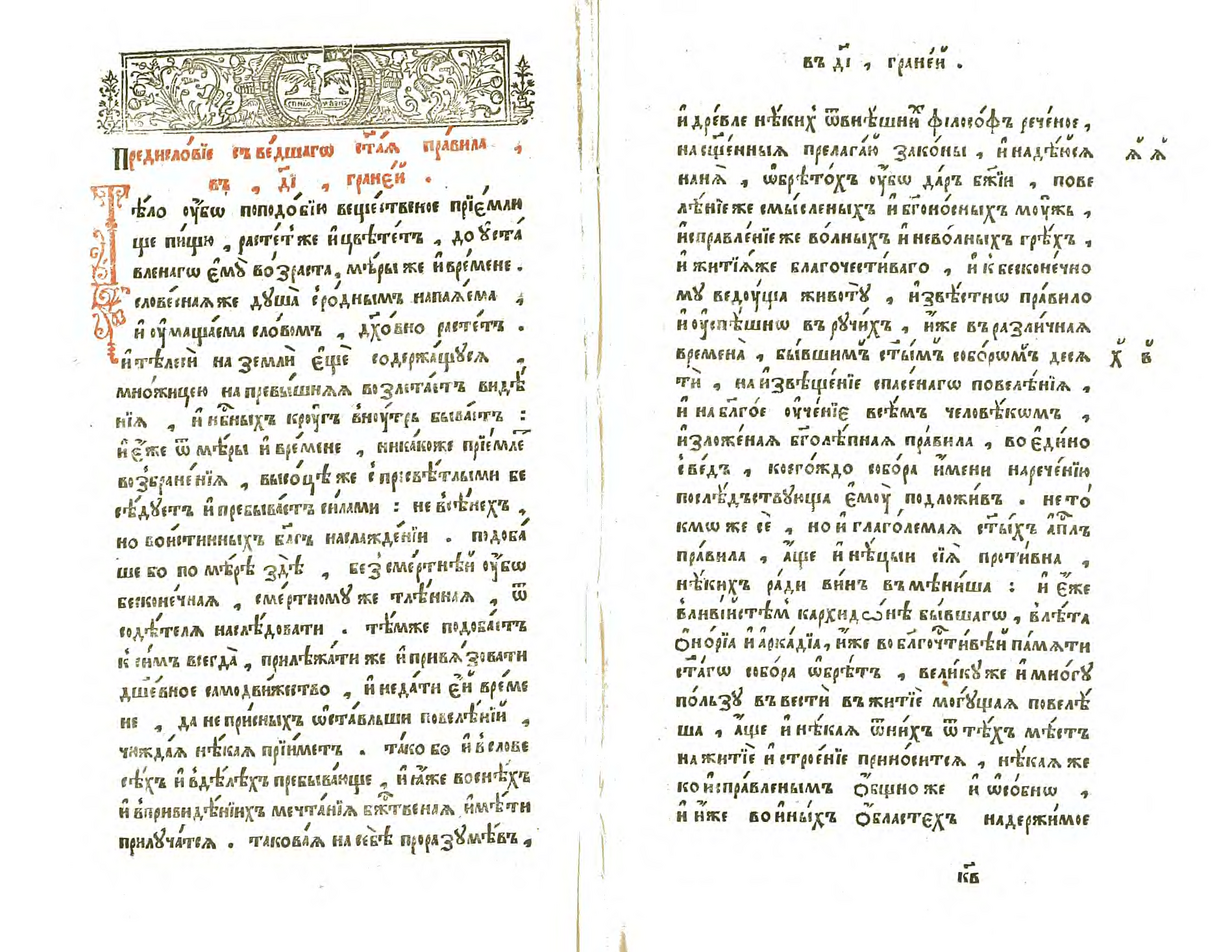 Предисло́вїе съве́дшагѡ ст҃а́ѧ пра́вила ,
въ , д҃і , гране́й .
Тѣ́ло ᲂу҆́бѡ поподо́бїю веще́ственое прїе́млю
ще пи́щю , расте́т же и҆цвѣ́тетъ , доᲂу҆ста́
вленагѡ є҆мꙋ̀ во́зраста , мѣ́ры же и҆вре́мене .
слове́снаѧ же дꙋша̀ сро́днымъ напаѧ́ема ,
и҆ ᲂу҆маща́ема сло́вомъ , дꙋ҃о́вно расте́тъ .
и҆ тѣ́лесѝ на землѝ є҆щѐ содержа́щꙋсѧ ,
мно́жицею на превы́шнѧѧ возлета́етъ видѣ́
нїѧ , и҆ нб҃ныхъ крꙋ́гъ внꙋ́трь быва́етъ :
и҆ є҆́же ѿ мѣ́ры и҆ вре́мене , ника́коже прїе́мле
возбране́нїѧ , высоцѣ́ же с пресвѣ́тлыми бе
сѣ́дꙋетъ и҆ пребыва́етъ си́лами : не в сѣ́нехъ ,
но вои́стинныхъ бл҃гъ наслажде́нїи . подоба́
ше бо по мѣ́рѣ здѣ̀ , безсме́ртнѣй ᲂу҆́бѡ
бесконе́чнаѧ , сме́ртномꙋ же тлѣ́ннаѧ , ѿ
содѣ́телѧ наслѣ́довати . тѣ́мже подоба́етъ
к си́мъ всегда̀ , прилѣжа́ти же и҆ привѧ́зовати
дш҃е́вное самодви́жество , и҆ неда́ти є҆́й вре́ме
не , да не при́сныхъ ѡ҆ста́вльши повелѣ́нїй ,
чꙋжда́ѧ нѣ́каѧ прїи́метъ . та́ко бо и҆ в слове
сѣ́хъ и҆ в дѣ́лѣхъ пребыва́юще , и҆ ꙗ҆́же во снѣ́хъ
и҆ в привидѣ́нїихъ мечта́нїѧ бж҃е́ственаѧ и҆мѣ́ти
прилꙋча́тсѧ . такова́ѧ на себѣ̀ проразꙋмѣ́въ ,
въ д҃і , гране́й .
и҆ дре́вле нѣ́кихъ ѿ внѣ́шнихъ филосо́фъ рече́ное ,
на сщ҃е́нныѧ прелага́ю зако́ны , и҆ надѣ́юсѧ
на нѧ̀ , ѡ҆брѣто́хъ ᲂу҆́бѡ да́ръ бж҃їи , пове
лѣ́нїе же смы́сленыхъ и҆ бг҃оно́сныхъ мᲂу́жь ,
и҆справле́нїе же во́лныхъ и҆ нево́лныхъ грѣ́хъ ,
и҆ житїѧ̀же благочести́ваго , и҆ к бесконе́чно
мꙋ ведᲂу́ща животꙋ̀ , и҆звѣ́стнѡ пра́вило
и҆ ᲂу҆спѣ́шнѡ в рꙋчи́хъ , и҆́же в разли́чнаѧ
времена̀ , бы́вшимъ ст҃ы́мъ собо́рѡмъ десѧ
тѝ , на и҆звѣще́нїе спасе́нагѡ повелѣ́нїѧ ,
и҆ на бл҃го́е ᲂу҆че́нїе всѣ́мъ человѣ́кѡмъ ,
и҆зложе́наѧ бг҃олѣ́пнаѧ пра́вила , во є҆ди́но
све́дъ , коего́ждо собо́ра и҆́мени нарече́нїю
послѣ́дъствꙋюща є҆мᲂу̀ подложи́въ . не то́
кмѡ же сѐ , но и҆ глаго́лемаѧ ст҃ы́хъ а҆п҃лъ
пра́вила , а҆́ще и҆ нѣ́цыи сїѧ̀ проти́вна ,
нѣ́кихъ ра́ди ви́нъ вмѣни́ша : и҆ є҆́же
в ливі́йстѣм кархидѡ́нѣ бы́вшагѡ , в лѣ́та
ѻ҆но́рїа и҆ а҆рка́дїа , и҆́же во благочⷭ҇ти́вѣй па́мѧти
ст҃а́гѡ собо́ра ѡ҆брѣ́тъ , вели́кꙋ же и҆ мно́гꙋ
по́льзꙋ въвестѝ в житїѐ могꙋ́щаѧ повелѣ́
ша , а҆́ще и҆ нѣ́каѧ ѿ ни́хъ ѿ тѣ́хъ мѣ́стъ
на житїѐ и҆ строе́нїе прино́ситсѧ , нѣ́каѧ же
ко и҆спра́вленымъ ѻ҆́бщно же и҆ ѡ҆со́бнѡ ,
и҆ и҆́же во и҆ны́хъ ѻ҆́бластєхъ надержи́мое
к҃в